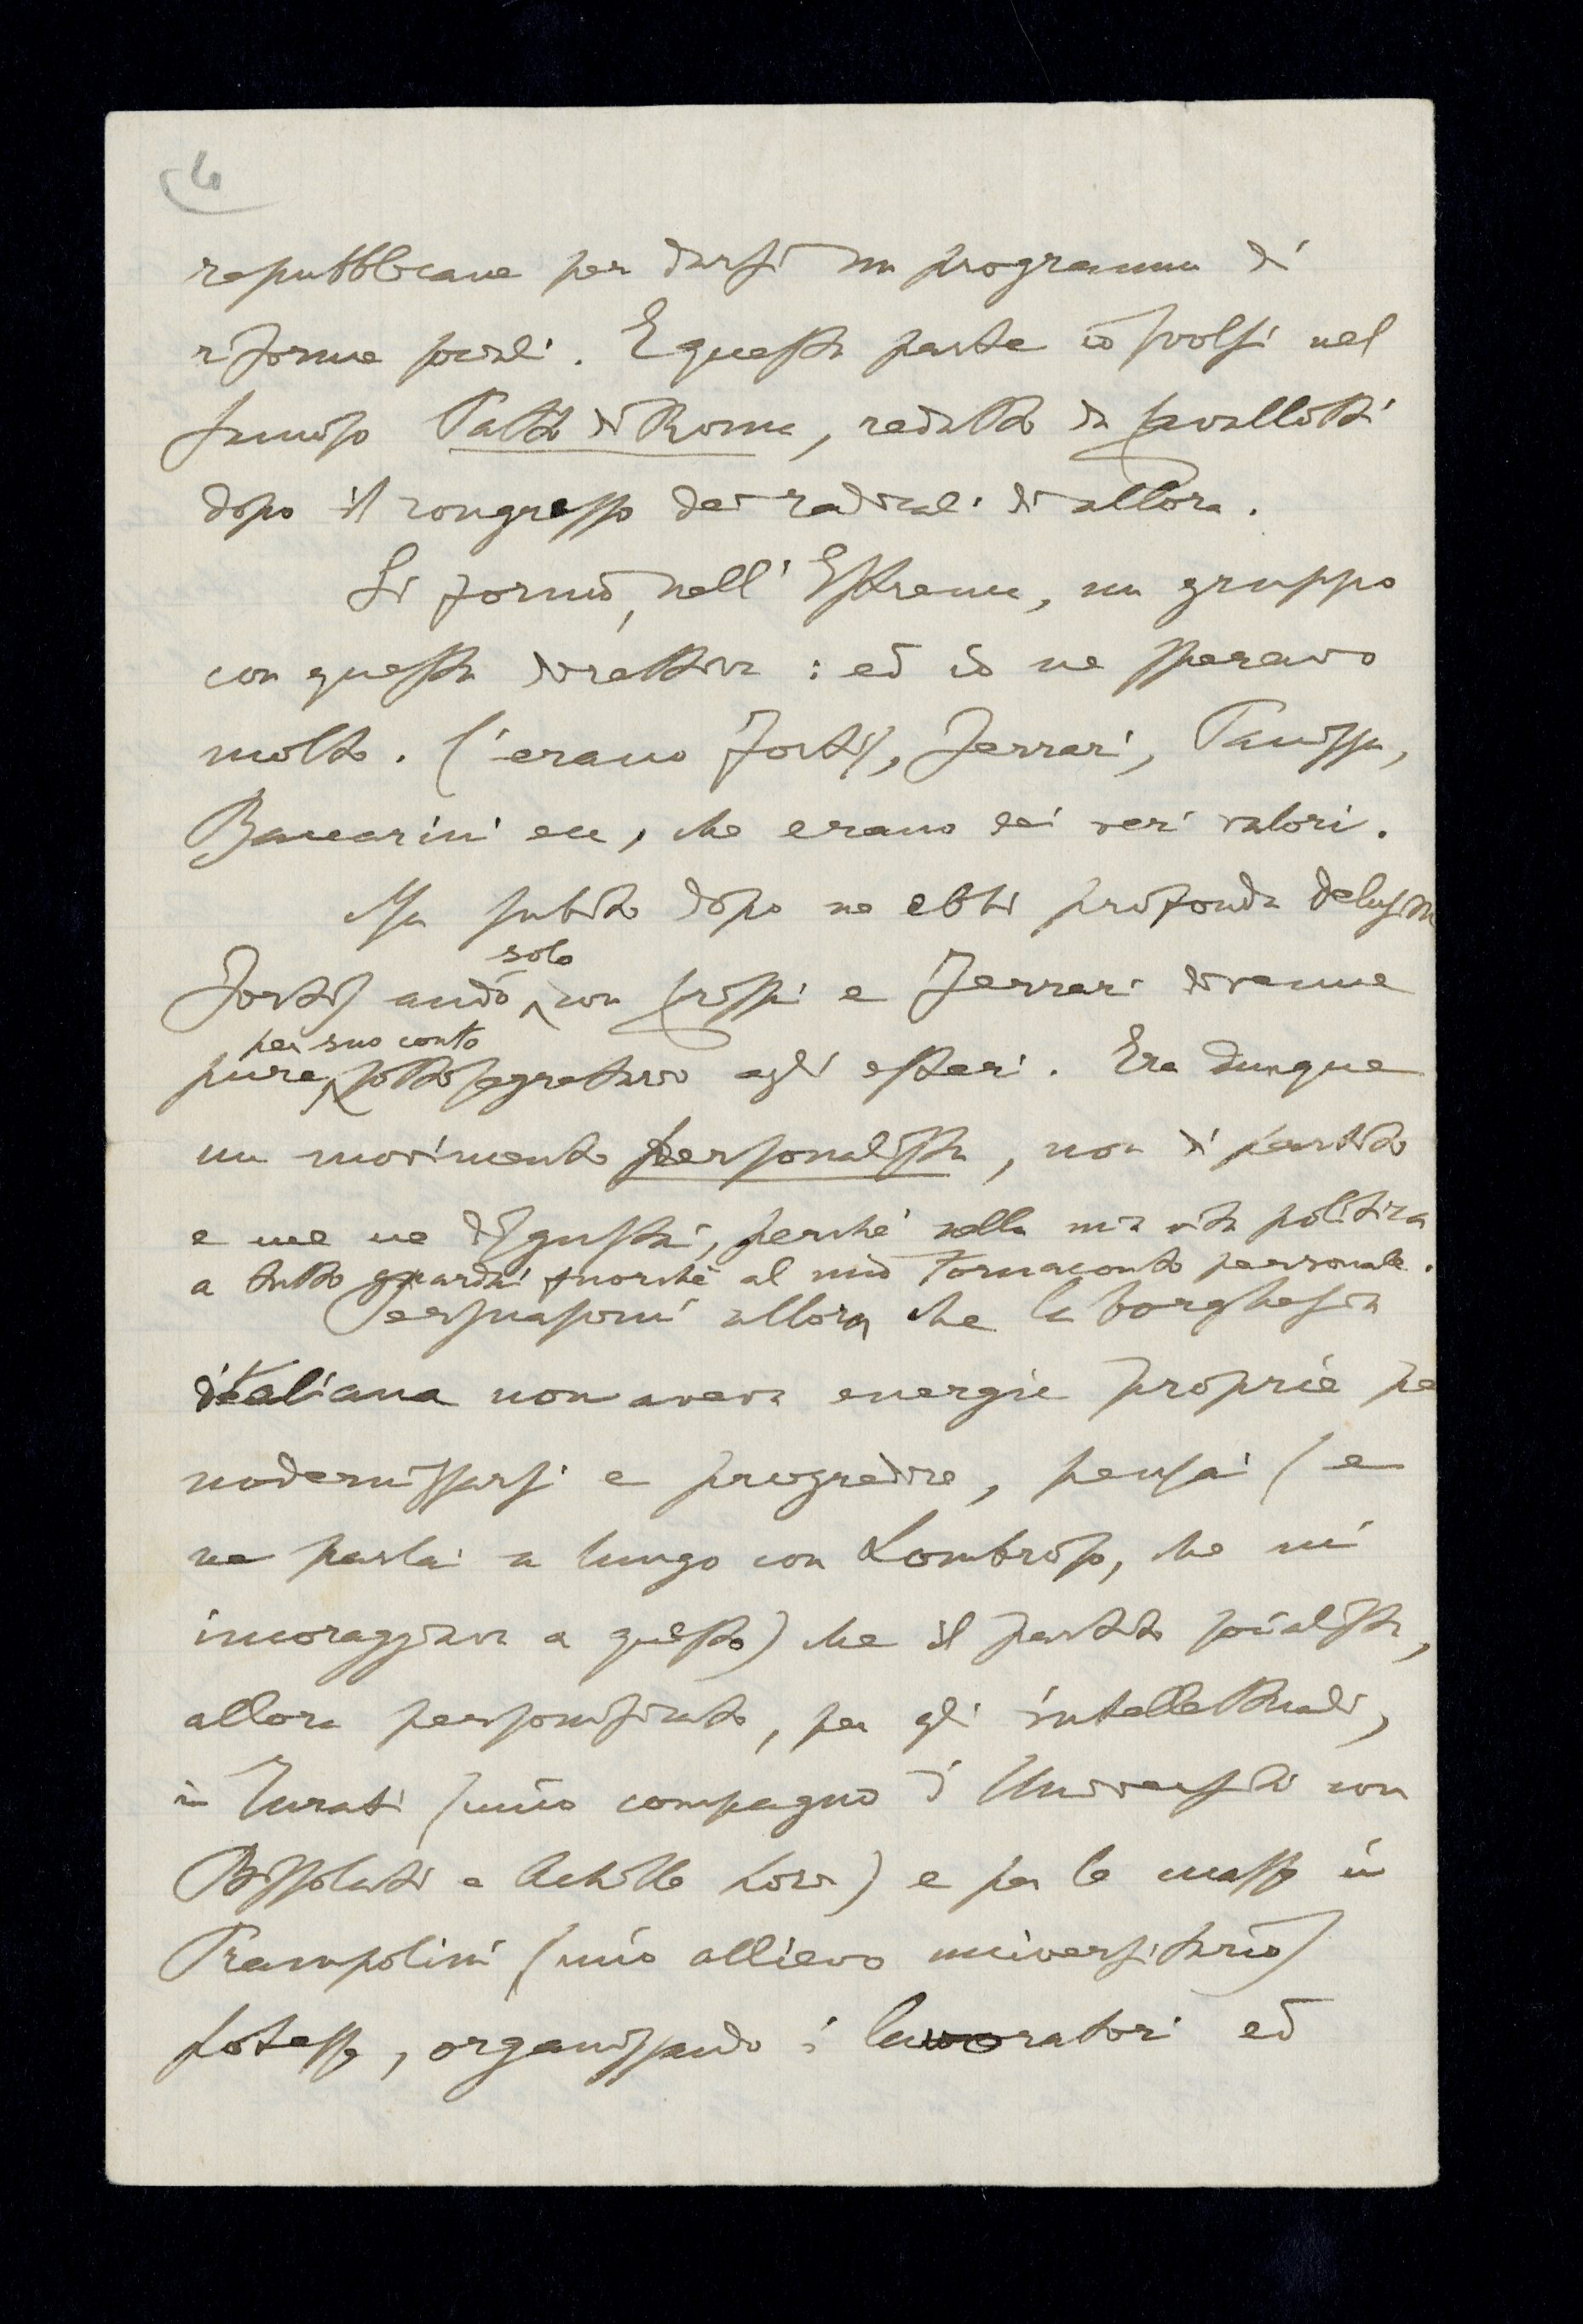 6
repubblicane per darsi un programma di
riforme sociali. E questa parte io svolsi nel
famoso Patto di Roma, redatto da Cavallotti
dopo il congresso dei radicali di allora.
Si formò, nell'Estrema, un gruppo
con questa direttiva: ed io ne speravo
molto. C'erano Fortis, Ferrari, Panizza,
Baccarini ecc, che erano dei veri valori.
Ma subito dopo ne ebbi profonda delusion
solo
Fortis andò con Crispi e Ferrari divenne
per suo conto
pure, sottosegretario agli esteri. Era dunque
un movimento personalista, non di partito
e me ne disgustai, perché nella mia vita politica
a tutto guardai fuorché al mio tornaconto personale.
Persuasomi allora che la borghesia
italiana non aveva energie proprie pe
modernizzarsi e progredire, pensai (e
ne parlai a lungo con Lombroso, che mi
incoraggiava a questo) che il partito socialista,
allora personificato, per gli intellettuali,
in Turati (mio compagno d'Università con
Bissolati e Achille Loria) e per le masse in
Prampolini (mio allievo universitario)
potesse, organizzando i lavoratori ed